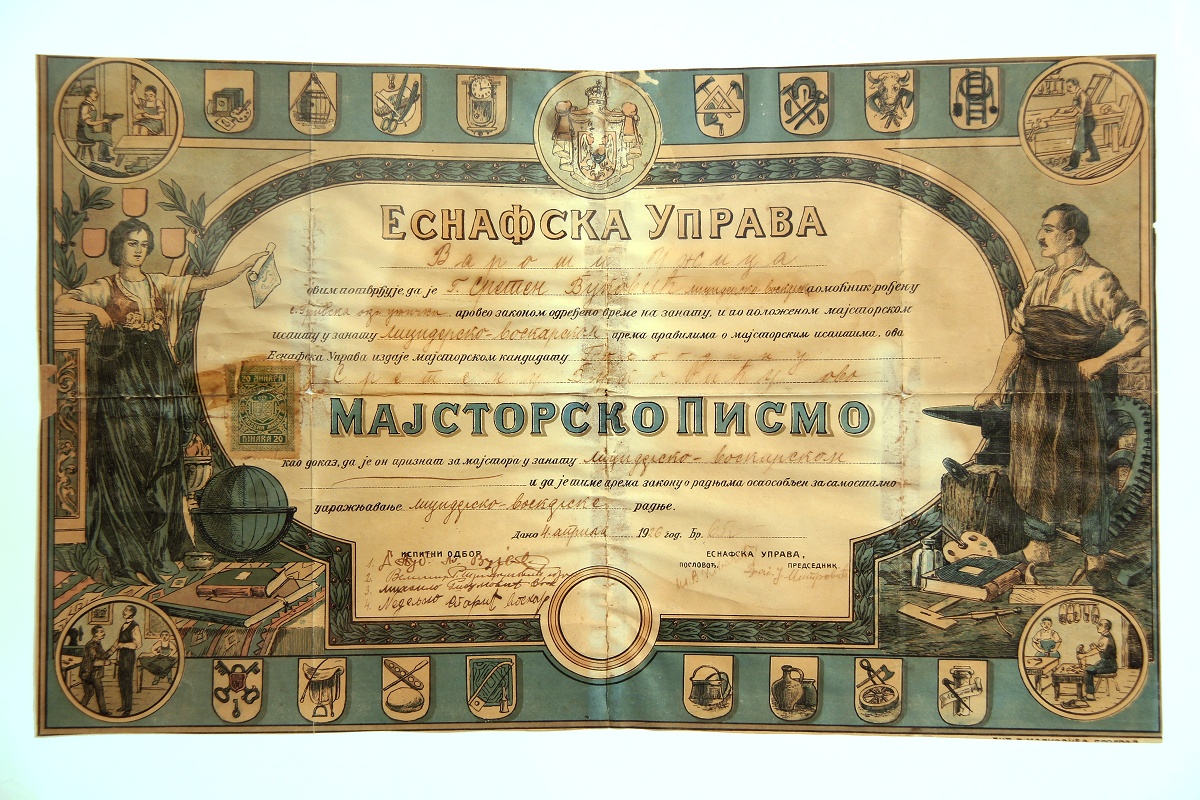 ЕСНАФСКА УПРАВА
Вароши Ужица
овим потврђује, да је Г. Сретен Вуковић помоћник рођен у
провео законом одређено време на занату, и по положеном мајсторском
испиту у занату лицидерско-воскарском према правилима о мајсторским испитима, ова
Еснафска Управа издаје мајсторском кандидату
Сретену ово
20 ДИНАРА
ДИНАРА 20
МАЈСТОРСКО ПИСМО
као доказ, да је он признат за мајстора у занату лицидерско-воскарском
и да је тиме према закону о радњама оспособљен за самостално
упражњавање лицидерско-воскарске радње.
Дано 4. априла 1926 год. Бр.
ИСПИТНИ ОДБОР
ЕСНАФСКА УПРАВА,
ПОСЛОВОЂ,
ПРЕДСЕДНИК
1.
2.
3.
4. Недељко